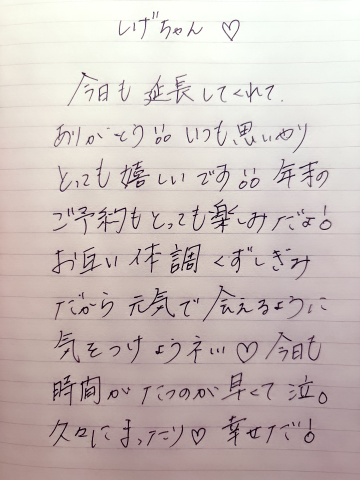 しげちゃん ♡
今日も 延長してくれて.
ありがとう!! いつも思いやり
とっても 嬉しいです!! 年末の
ご予約もとっても楽しみだよ!
お互い 体調 くずしぎみ
だから 元気で 会えるように
気をつけようネ… ♡ 今日も
時間が たつのが 早くて 泣。
久々に まったり♡ 幸せだ!